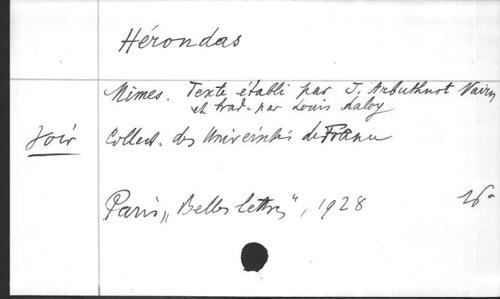 Hérondas
Mimes. Texte établi par J. Arbuthnot Nairn
et trad. par Louis Laloy
Voir Collect. des Universités de France
Paris, "Belles lettres", 1928 16°